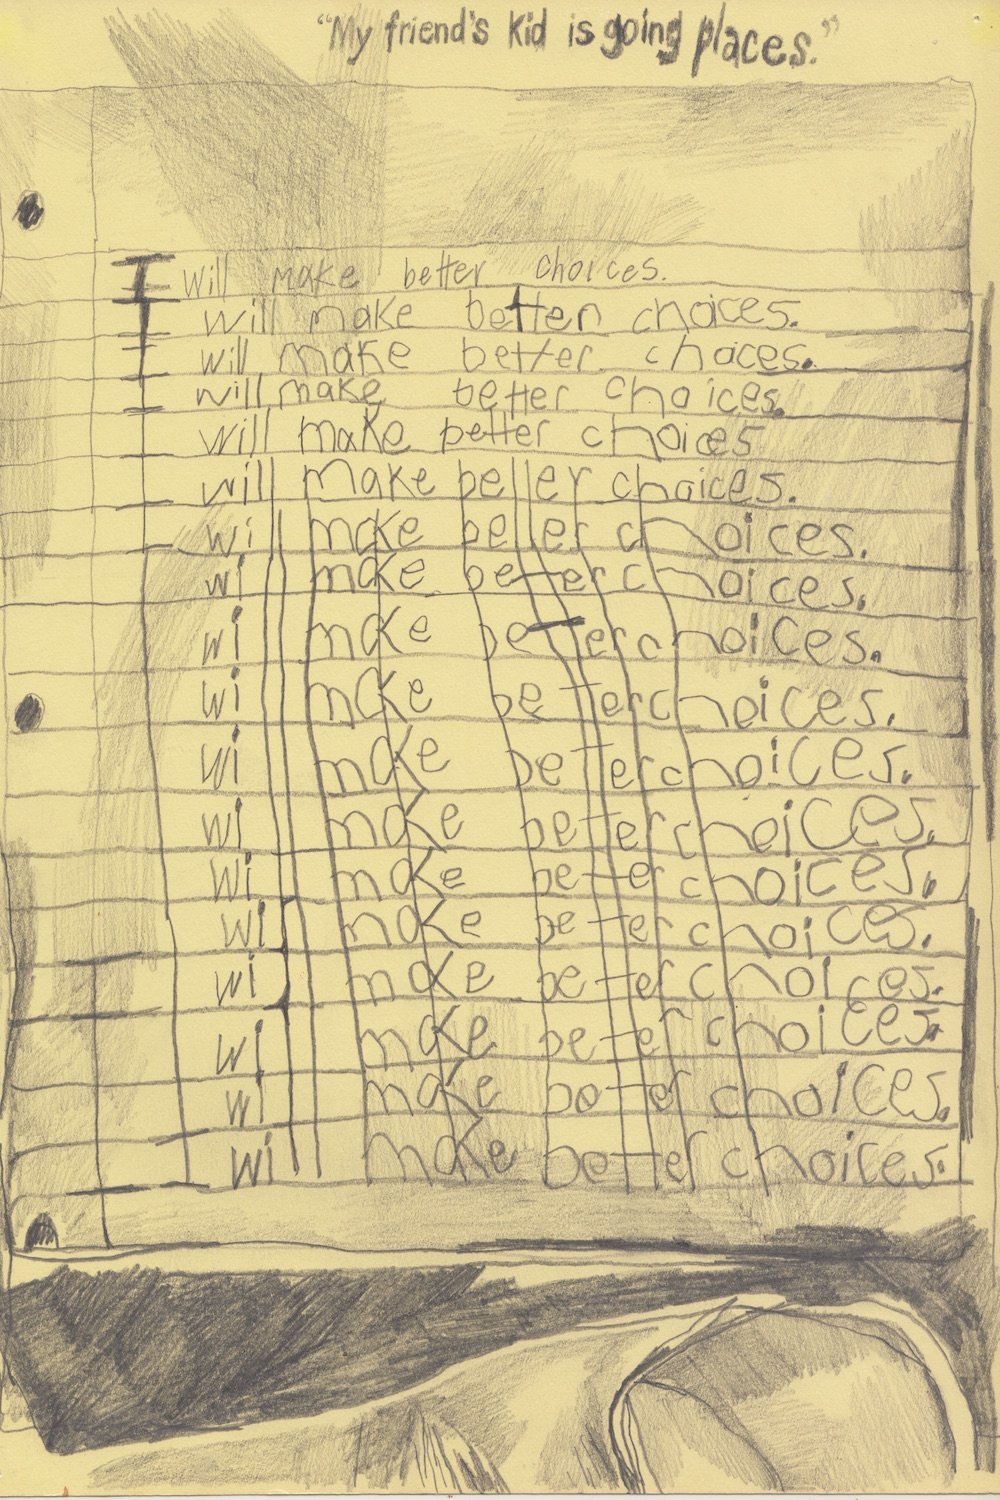 “My friend's kid is going places.”
I will make better choices.
I will make better choices.
I will make better choices.
I will make better choices.
I will make better choices
I will make better choices.
I will make better choices.
I will make better choices.
I will make better choices.
I will make better choices.
I will make better choices.
I will make better choices.
I will make better choices.
I will make better choices.
I will make better choices.
I will make better choices.
I will make better choices.
I will make better choices.